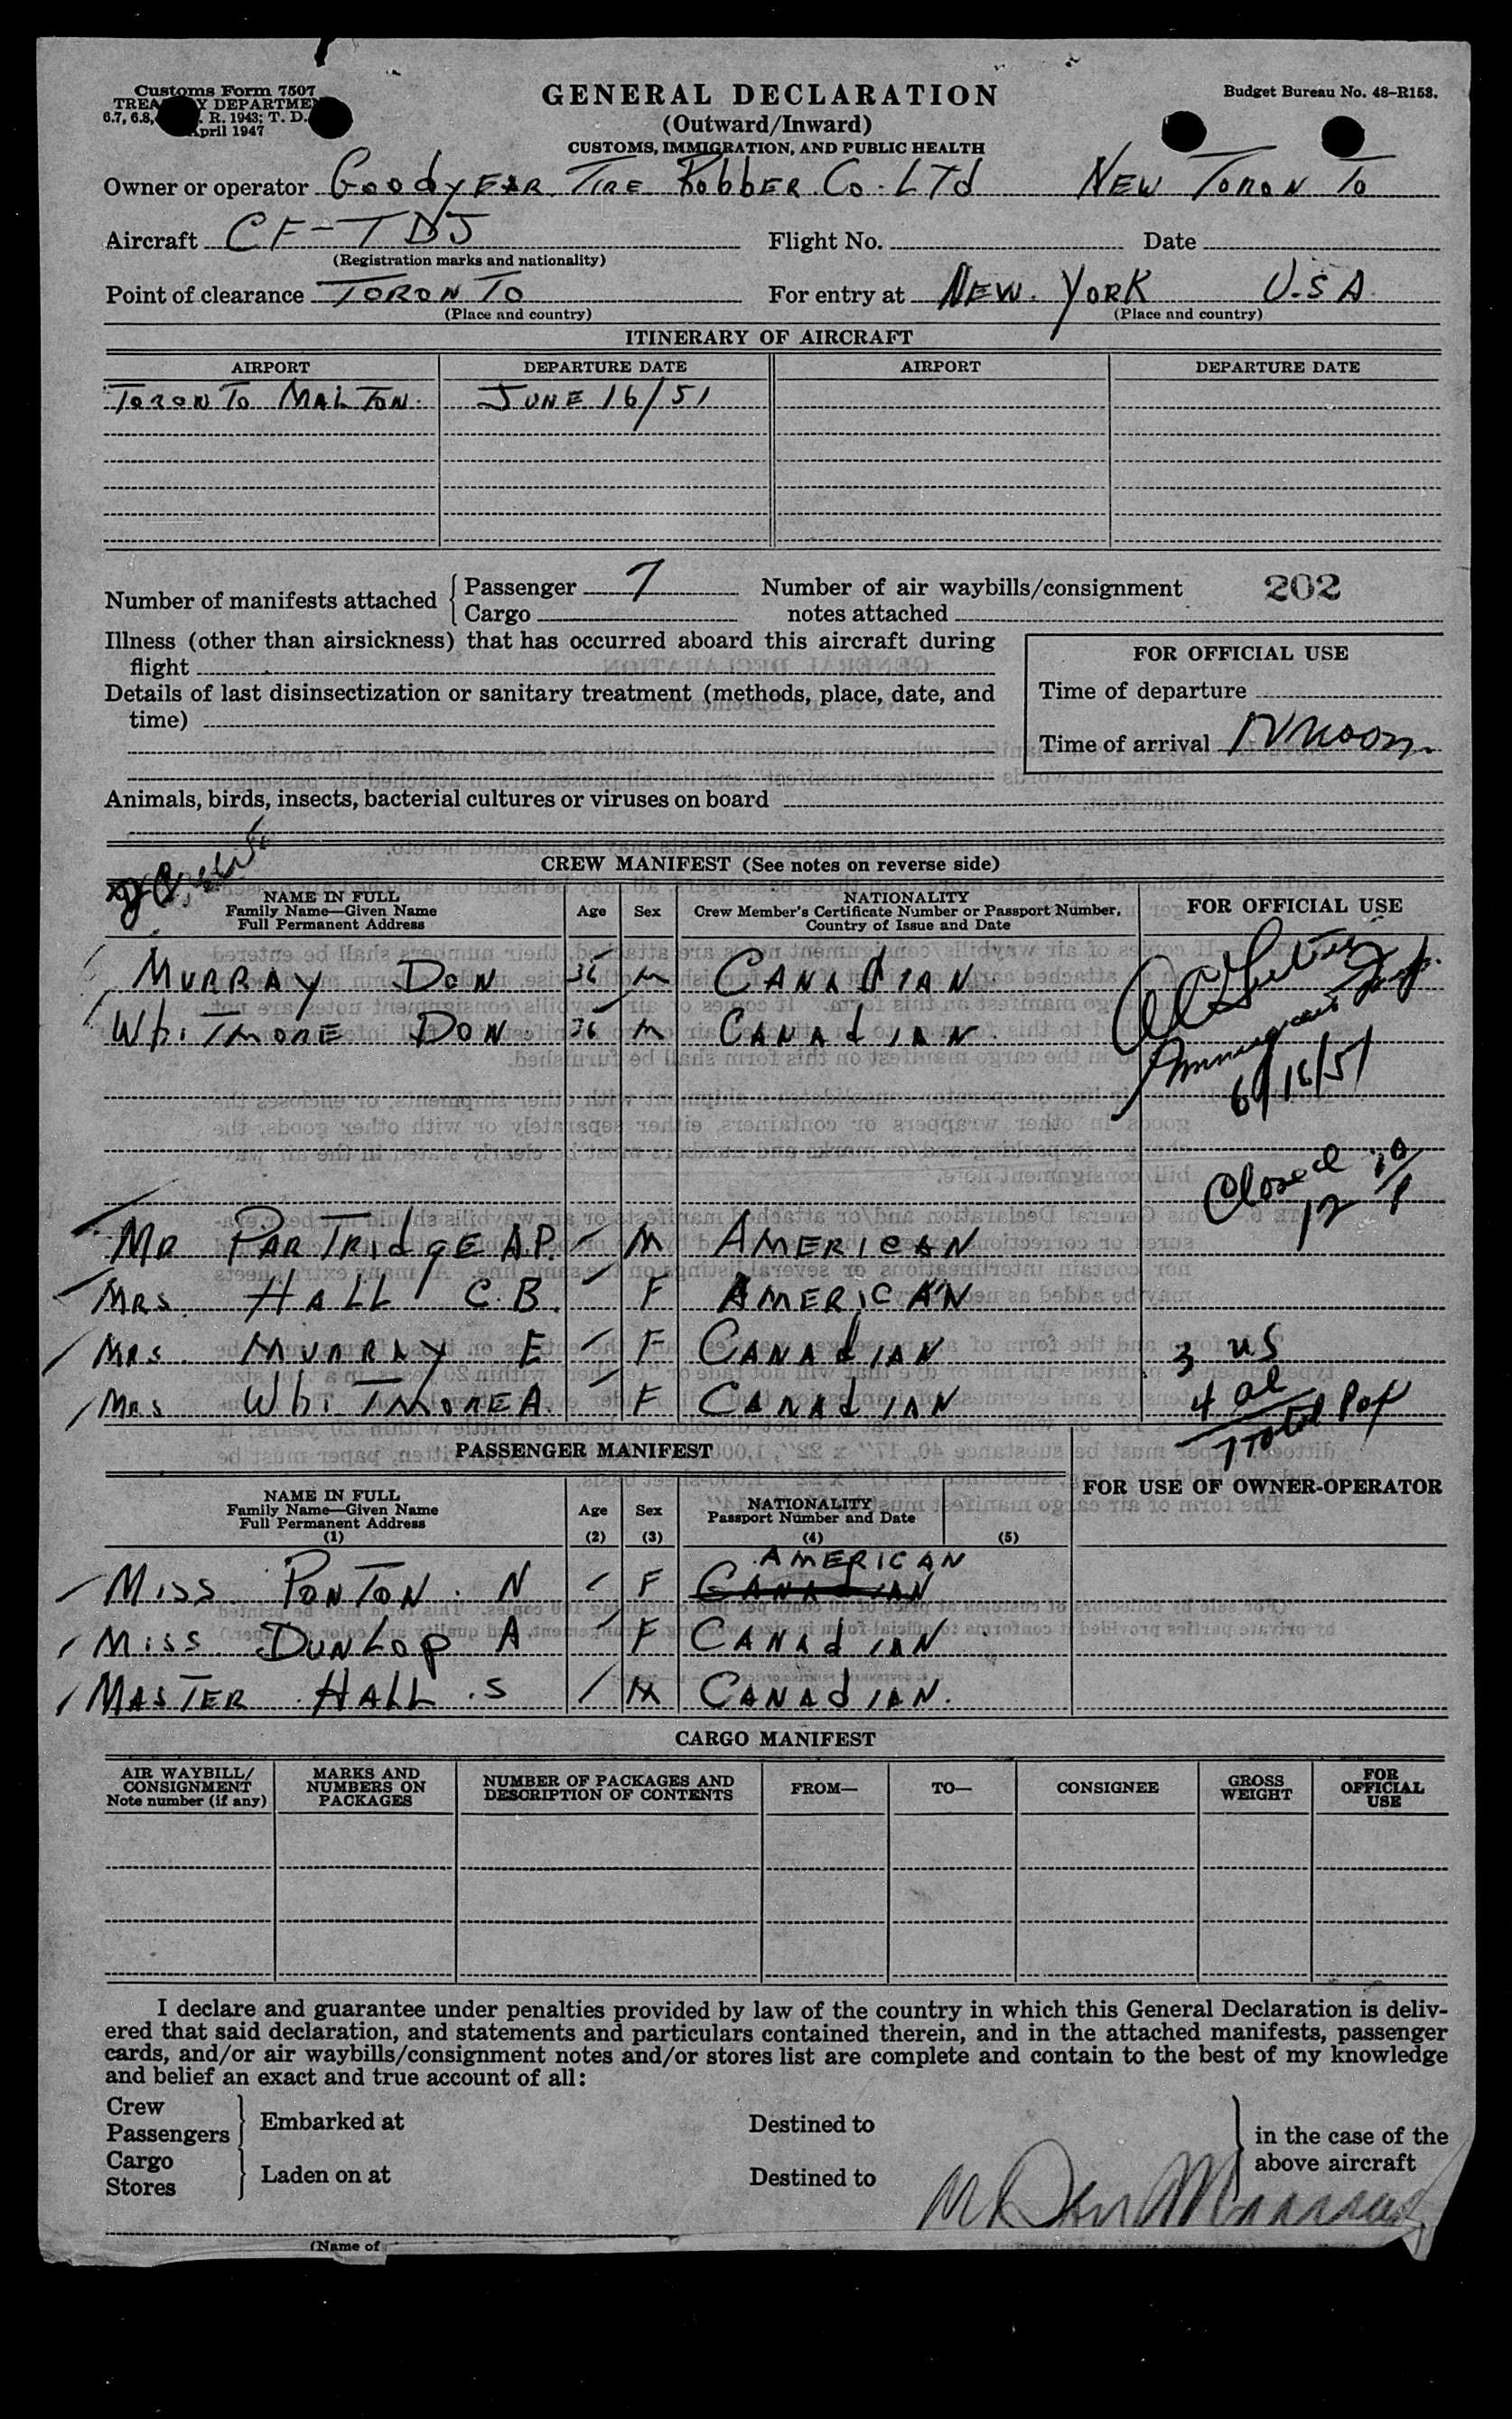 Customs Form 7507
TREA Y DEPARTME
6.7, 6.8, . R. 1943; T. D.
April 1947
GENERAL DECLARATION
(Outward/Inward)
CUSTOMS, IMMIGRATION, AND PUBLIC HEALTH
Budget Bureau No. 48-R153.
Owner or operator GoodyEAR TIRE RobbER Co. LTd NEW TORONTO
Aircraft CF-TDJ Flight No. Date
(Registration marks and nationality)
Point of clearance TORONTO For entry at NEW. YORK U.S.A.
(Place and country) (Place and country)
ITINERARY OF AIRCRAFT
AIRPORT DEPARTURE DATE AIRPORT DEPARTURE DATE
TORONTO MALTON. JUNE 16/51
Number of manifests attached { Passenger 7 Number of air waybills/consignment 202
Cargo notes attached
Illness (other than airsickness) that has occurred aboard this aircraft during
flight
FOR OFFICIAL USE
Details of last disinsectization or sanitary treatment (methods, place, date, and
time)
Time of departure
Time of arrival 12 noon.
Animals, birds, insects, bacterial cultures or viruses on board
CREW MANIFEST (See notes on reverse side)
NAME IN FULL
Family Name—Given Name
Full Permanent Address
Age Sex
NATIONALITY
Crew Member's Certificate Number or Passport Number,
Country of Issue and Date
FOR OFFICIAL USE
MURRAY DON 36 M CANAdIAN.
WhiTMORE DON. 36 M CANAdIAN.
6/16/51
Closed
12
MR PARTRIdGE A.P. M AMERICAN
MRS. HALL C.B. F AMERICAN
MRS. MURRAY E F CANAdIAN 3 US
MRS WhiTMORE A. F CANAdIAN 4 al
7 Total
PASSENGER MANIFEST
FOR USE OF OWNER-OPERATOR
NAME IN FULL
Family Name—Given Name
Full Permanent Address
(1)
Age
(2)
Sex
(3)
NATIONALITY
Passport Number and Date
(4) (5)
AMERICAN
MISS PONTON. N F CANAdIAN
MISS. DUNLOP A F CANAdIAN
MASTER HALL .S M CANAdIAN.
CARGO MANIFEST
AIR WAYBILL/
CONSIGNMENT
Note number (if any)
MARKS AND
NUMBERS ON
PACKAGES
NUMBER OF PACKAGES AND
DESCRIPTION OF CONTENTS
FROM— TO— CONSIGNEE
GROSS
WEIGHT
FOR
OFFICIAL
USE
I declare and guarantee under penalties provided by law of the country in which this General Declaration is deliv-
ered that said declaration, and statements and particulars contained therein, and in the attached manifests, passenger
cards, and/or air waybills/consignment notes and/or stores list are complete and contain to the best of my knowledge
and belief an exact and true account of all:
Crew
Passengers } Embarked at Destined to
Cargo
Stores } Laden on at Destined to
in the case of the
above aircraft
Don Murray
(Name of